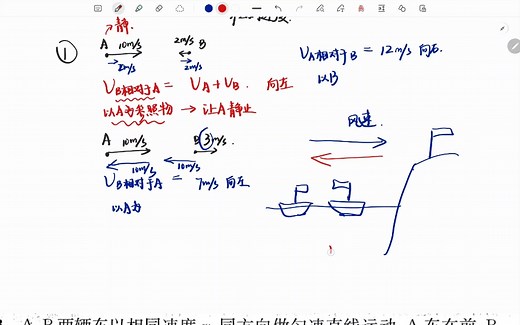 静
① A 10m/s 2m/s B
2m/s 2m/s
V_B相对于A = V_A + V_B. 向左
以A为参照物 → 让A静止
V_A相对于B = 12m/s 向右
以B
A 10m/s B 3m/s
10m/s 10m/s
V_B相对于A = 7m/s 向左
以A为
风速
A、B两辆车以相同速度 同方向做匀速直线运动, A车在前, B